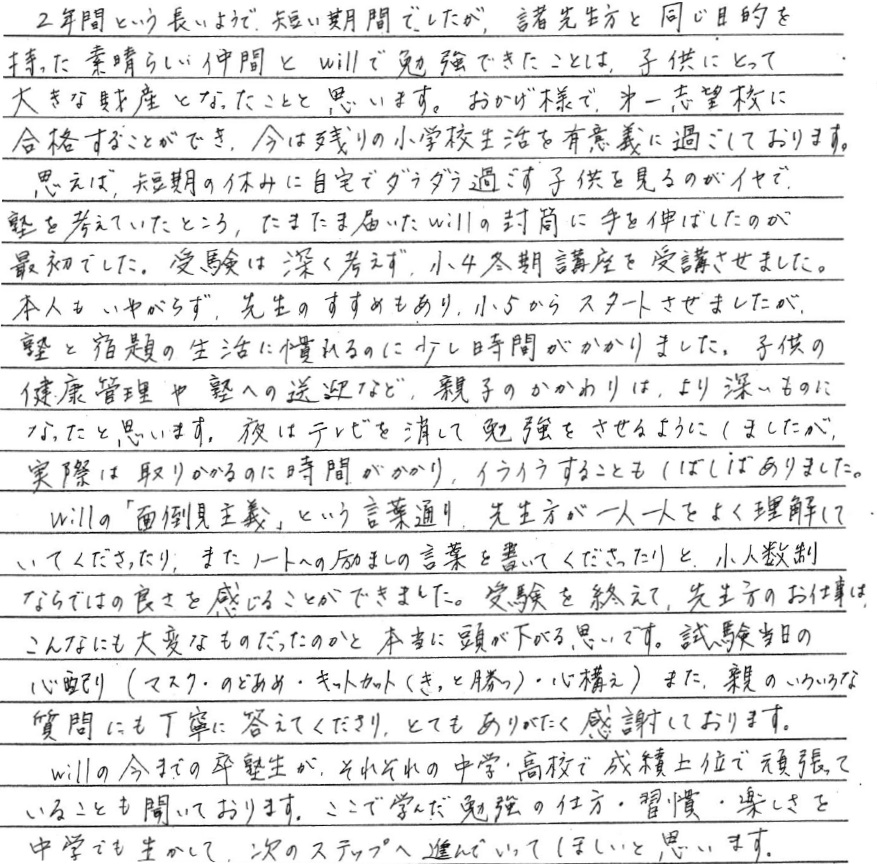 2年間という長いようで、短い期間でしたが、諸先生方と同じ目的を
持った素晴らしい仲間とwillで勉強できたことは、子供にとって
大きな財産となったことと思います。おかげ様で、第一志望校に
合格することができ、今は残りの小学校生活を有意義に過ごしております。
思えば、短期の休みに自宅でダラダラ過ごす子供を見るのがイヤで、
塾を考えていたところ、たまたま届いたwillの封筒に手を伸ばしたのが
最初でした。受験は深く考えず、小4冬期講座を受講させました。
本人もいやがらず、先生のすすめもあり、小5からスタートさせましたが、
塾と宿題の生活に慣れるのに少し時間がかかりました。子供の
健康管理や塾への送迎など、親子のかかわりは、より深いものに
なったと思います。夜はテレビを消して勉強をさせるようにしましたが、
実際は取りかかるのに時間がかかり、イライラすることもしばしばありました。
willの「面倒見主義」という言葉通り、先生方が一人一人をよく理解して
いてくださったり、またノートへの励ましの言葉を書いてくださったりと、小人数制
ならではの良さを感じることができました。受験を終えて、先生方のお仕事は、
こんなにも大変なものだったのかと本当に頭が下がる思いです。試験当日の
心配り(マスク・のどあめ・キットカット(きっと勝つ)・心構え)また、親のいろいろな
質問にも丁寧に答えてくださり、とてもありがたく感謝しております。
willの今までの卒塾生が、それぞれの中学・高校で成績上位で頑張って
いることも聞いております。ここで学んだ勉強の仕方・習慣・楽しさを
中学でも生かして、次のステップへ進んでいってほしいと思います。